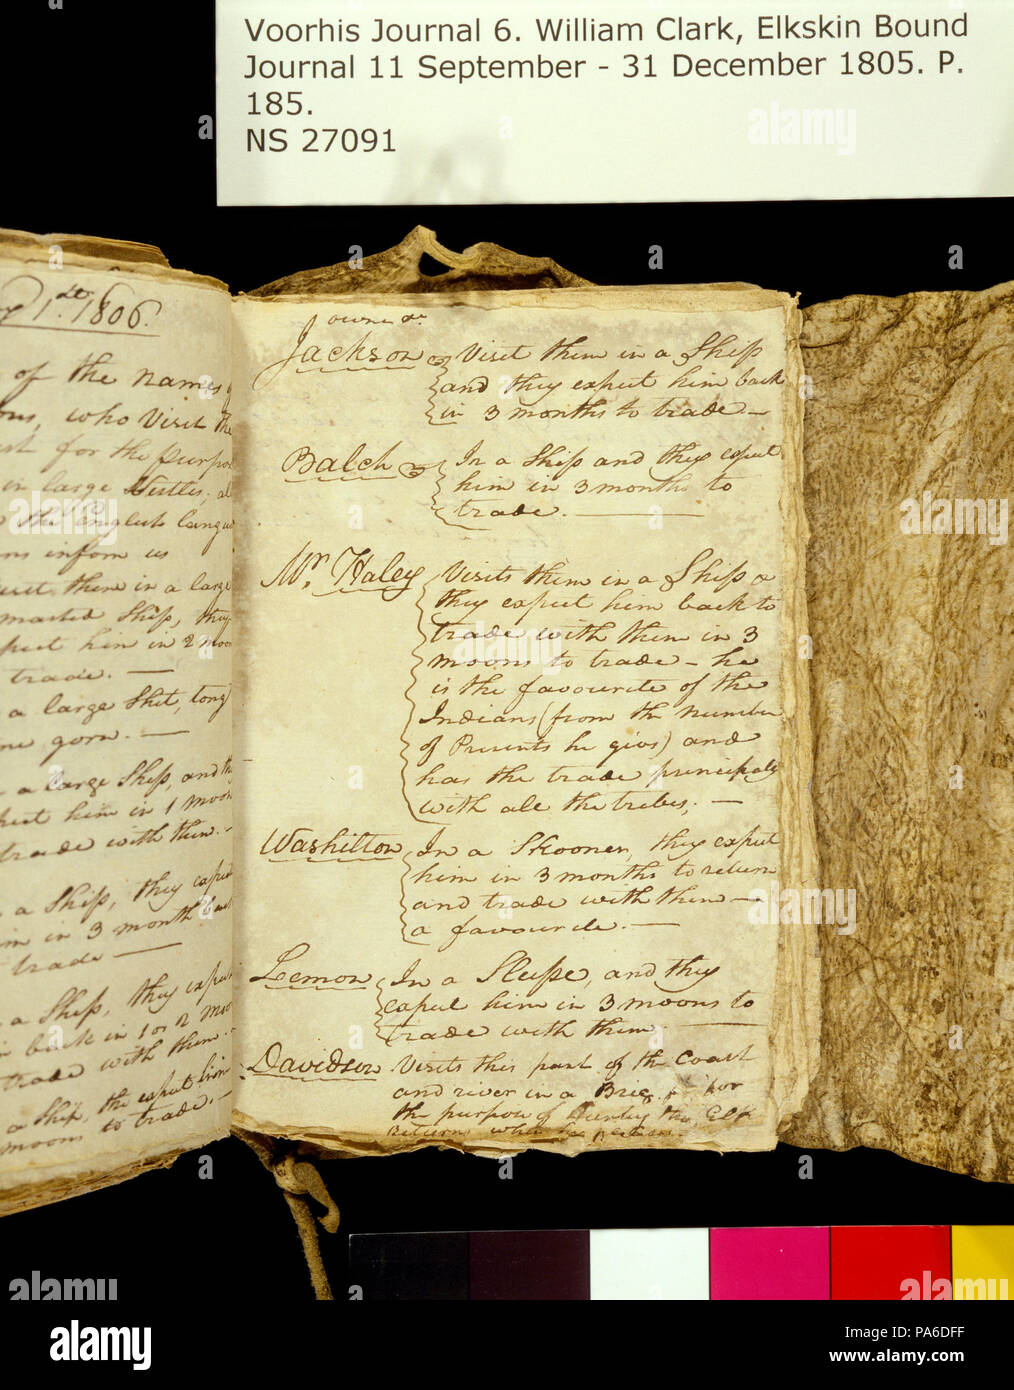 Voorhis Journal 6. William Clark, Elkskin Bound
Journal 11 September - 31 December 1805. P.
185.
NS 27091
1st. 1806.
of the names
who Visit the
for the purpos
in large
the english langu
ns inform us
them in a large
masted Ship, they
him in 2 moon
trade. —
a large Ship, long
gorn. —
a large Ship, and the
him in 1 moon
trade with them. —
a Ship, they expect
him in 3 month back
trade —
a Ship, they expect
back in 1 or 2 moo
trade with them. —
a Ship, the expect him
moons to trade. —
Jackson Visit them in a Ship
and they expect him back
in 3 months to trade —
Balch In a Ship and they expect
him in 3 months to
trade. —
Mr. Haley Visits them in a Ship &
they expect him back to
trade with them in 3
moons to trade - he
is the favourite of the
Indians (from the number
of Presents he givs) and
has the trade principaly
with all the tribes. —
Washilton In a Skooner, they expect
him in 3 months to return
and trade with them —
a favourite. —
Lemon In a Slupe, and they
expect him in 3 moons to
trade with them —
Davidson Visits this part of the Coast
and river in a Brig for
the purpose of Hunting the Elk
returns when he pleases.
alamy
Image ID: PA6DFF
www.alamy.com